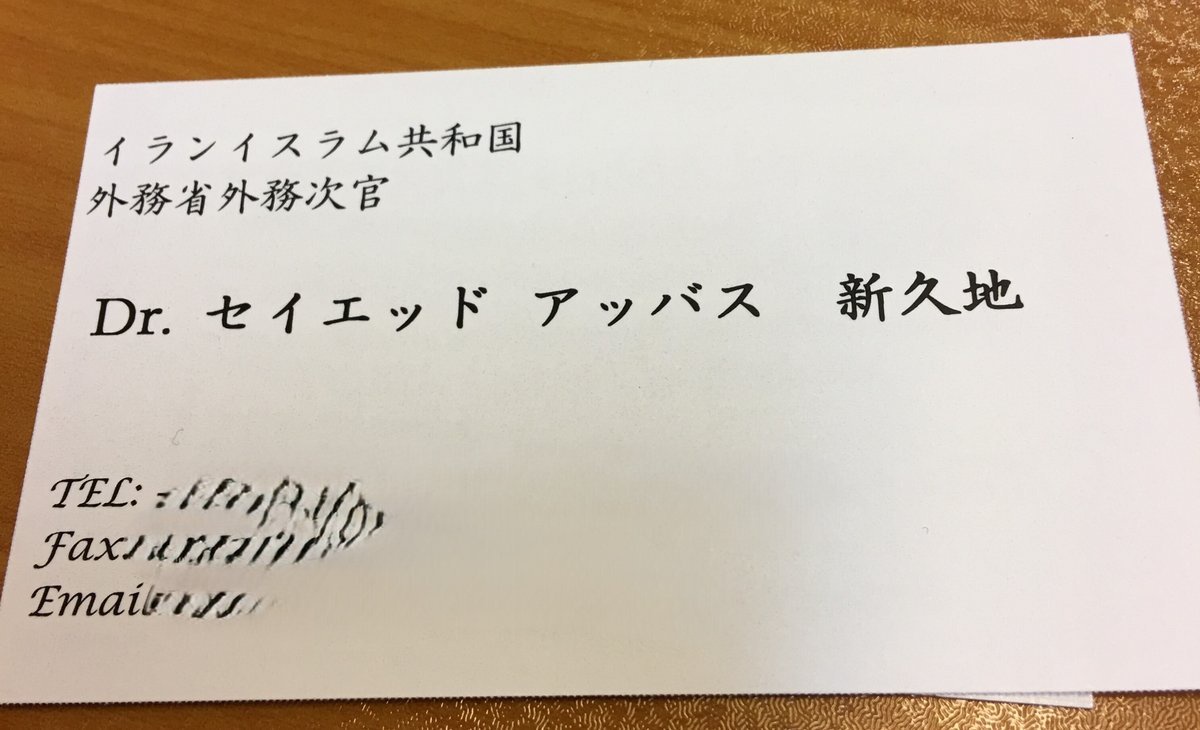 イランイスラム共和国
外務省外務次官
Dr. セイエッド アッバス 新久地
TEL:
Fax
Email